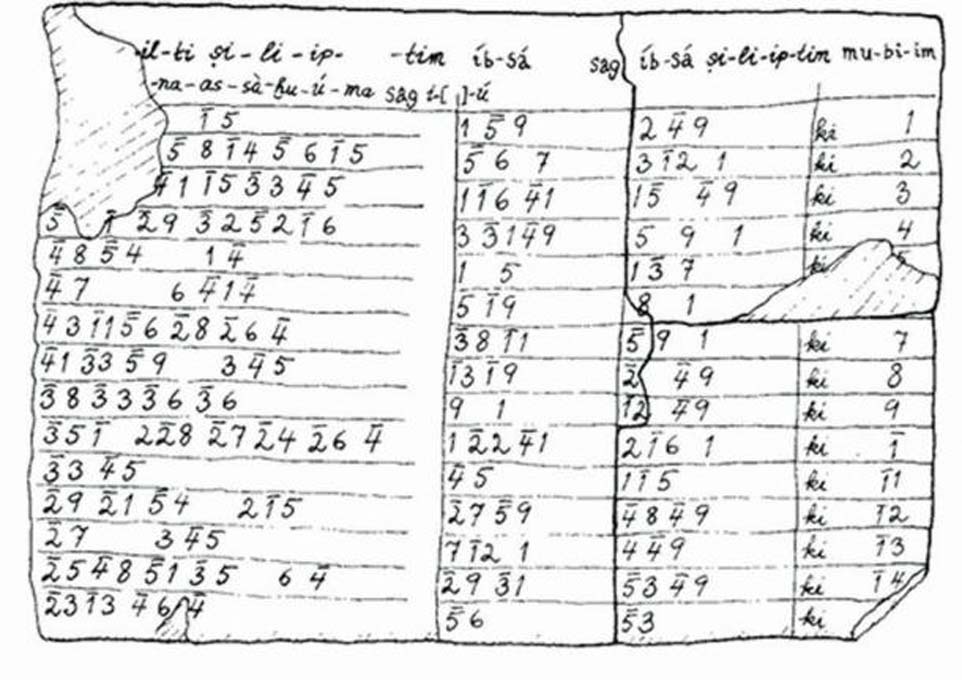 -il-ti ṣi-li-ip- -tim íb-sá sag íb-sá ṣi-li-ip-tim mu-bi-im
-na-as-sà-ḫu-ú-ma sag i-[ ]-ú
1̄5 1 5̄9 2 4̄9 ki 1
5̄ 8 1̄4 5̄ 6 1̄5 5̄6 7 3 1̄2 1 ki 2
4̄1 1̄5 3̄3 4̄5 1 1̄6 4̄1 1̄5 4̄9 ki 3
5̄ 1̄ 2̄9 3̄2 5̄2 1̄6 3 3̄1 4̄9 5 9 1 ki 4
4̄8 5̄4 1 4̄ 1 5 1 3̄7 ki 5
4̄7 6 4̄1 4̄ 5 1̄9 8 1
4̄3 1̄1 5̄6 2̄8 2̄6 4̄ 3̄8 1̄1 5̄9 1 ki 7
4̄1 3̄3 5̄9 3 4̄5 1̄3 1̄9 2̄ 4̄9 ki 8
3̄8 3̄3 3̄6 3̄6 9 1 1̄2 4̄9 ki 9
3̄5 1̄ 2 2̄8 2̄7 2̄4 2̄6 4̄ 1 2̄2 4̄1 2 1̄6 1 ki 1̄
3̄3 4̄5 4̄5 1 1̄5 ki 1̄1
2̄9 2̄1 5̄4 2 1̄5 2̄7 5̄9 4̄8 4̄9 ki 1̄2
2̄7 3 4̄5 7 1̄2 1 4 4̄9 ki 1̄3
2̄5 4̄8 5̄1 3̄5 6 4̄ 2̄9 3̄1 5̄3 4̄9 ki 1̄4
2̄3 1̄3 4̄6 4̄ 5̄6 5̄3 ki